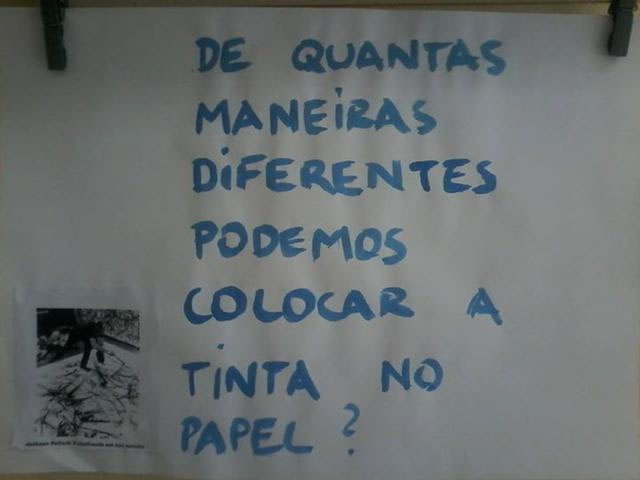 DE QUANTAS
MANEiRAS
DiFERENTES
PODEMOS
COLOCAR A
TiNTA NO
PAPEL?
Jackson Pollock Trabalhando em seu